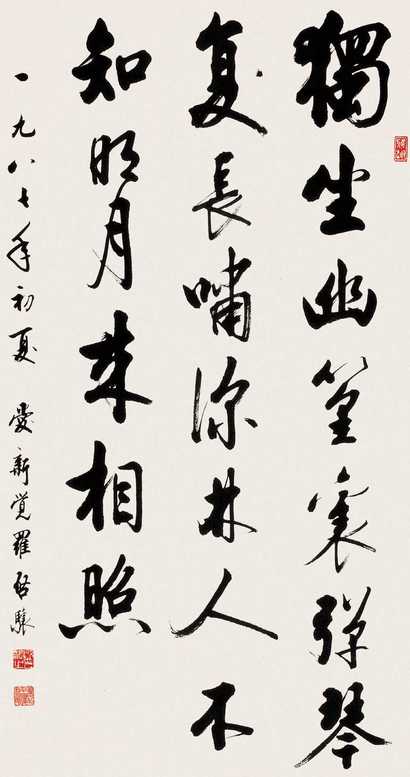 獨坐幽篁裏弹琴
复長嘯深林人不
知明月来相照
一九八七年初夏 愛新覚羅啓驤